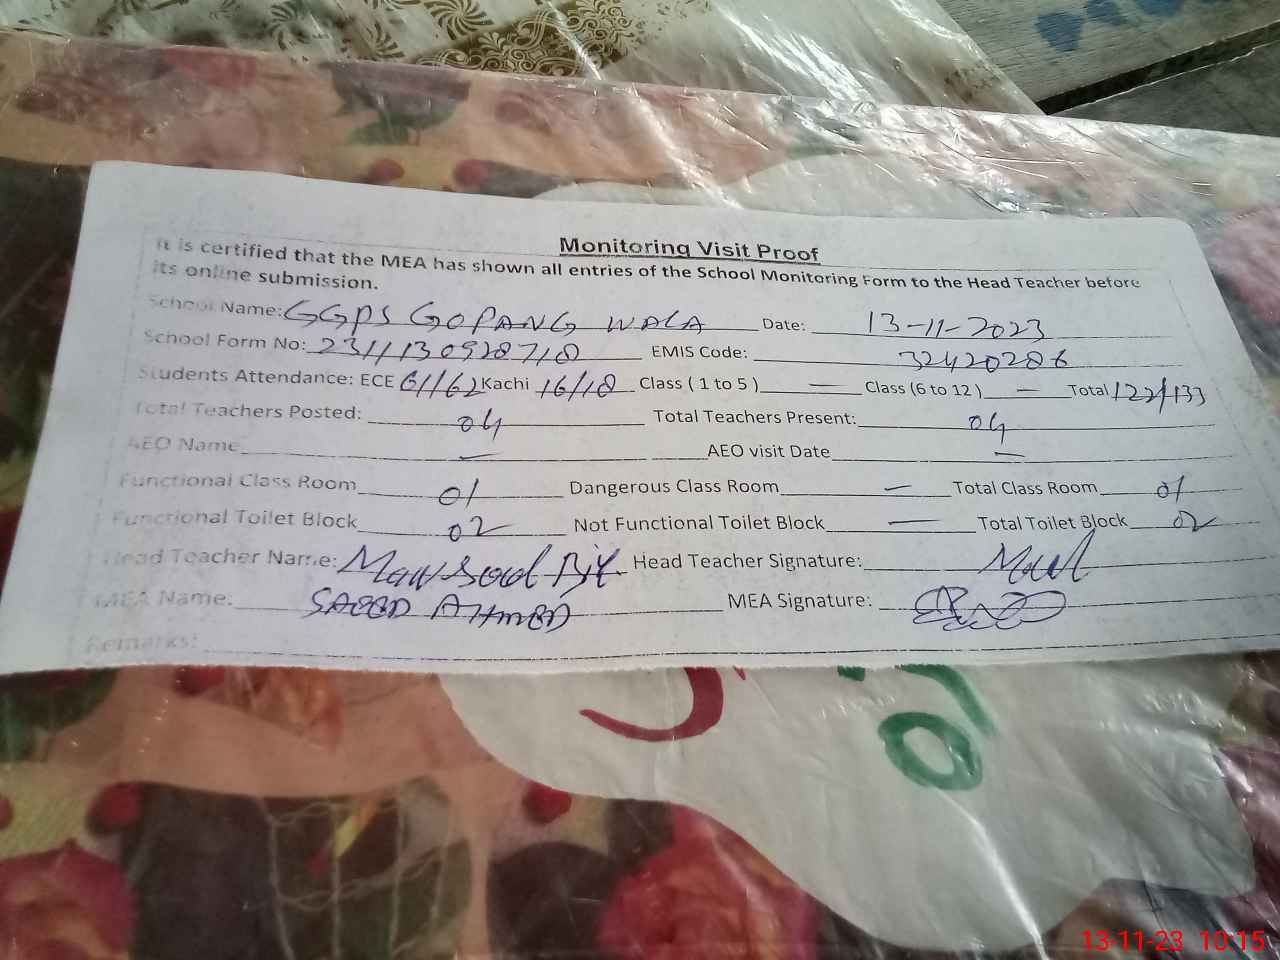 Monitoring Visit Proof
It is certified that the MEA has shown all entries of the School Monitoring Form to the Head Teacher before
its online submission.
School Name: GGPS GOPANG WALA Date: 13-11-2023
School Form No: 2311130928718 EMIS Code: 32420286
Students Attendance: ECE 61/62 Kachi 16/18 Class ( 1 to 5 ) — Class (6 to 12 ) — Total 122/133
Total Teachers Posted: 04 Total Teachers Present: 04
AEO Name — AEO visit Date —
Functional Class Room 01 Dangerous Class Room — Total Class Room 01
Functional Toilet Block 02 Not Functional Toilet Block — Total Toilet Block 02
Head Teacher Name: Head Teacher Signature:
MEA Name: SAEED AHMED MEA Signature:
Remarks:
13-11-23 10:15